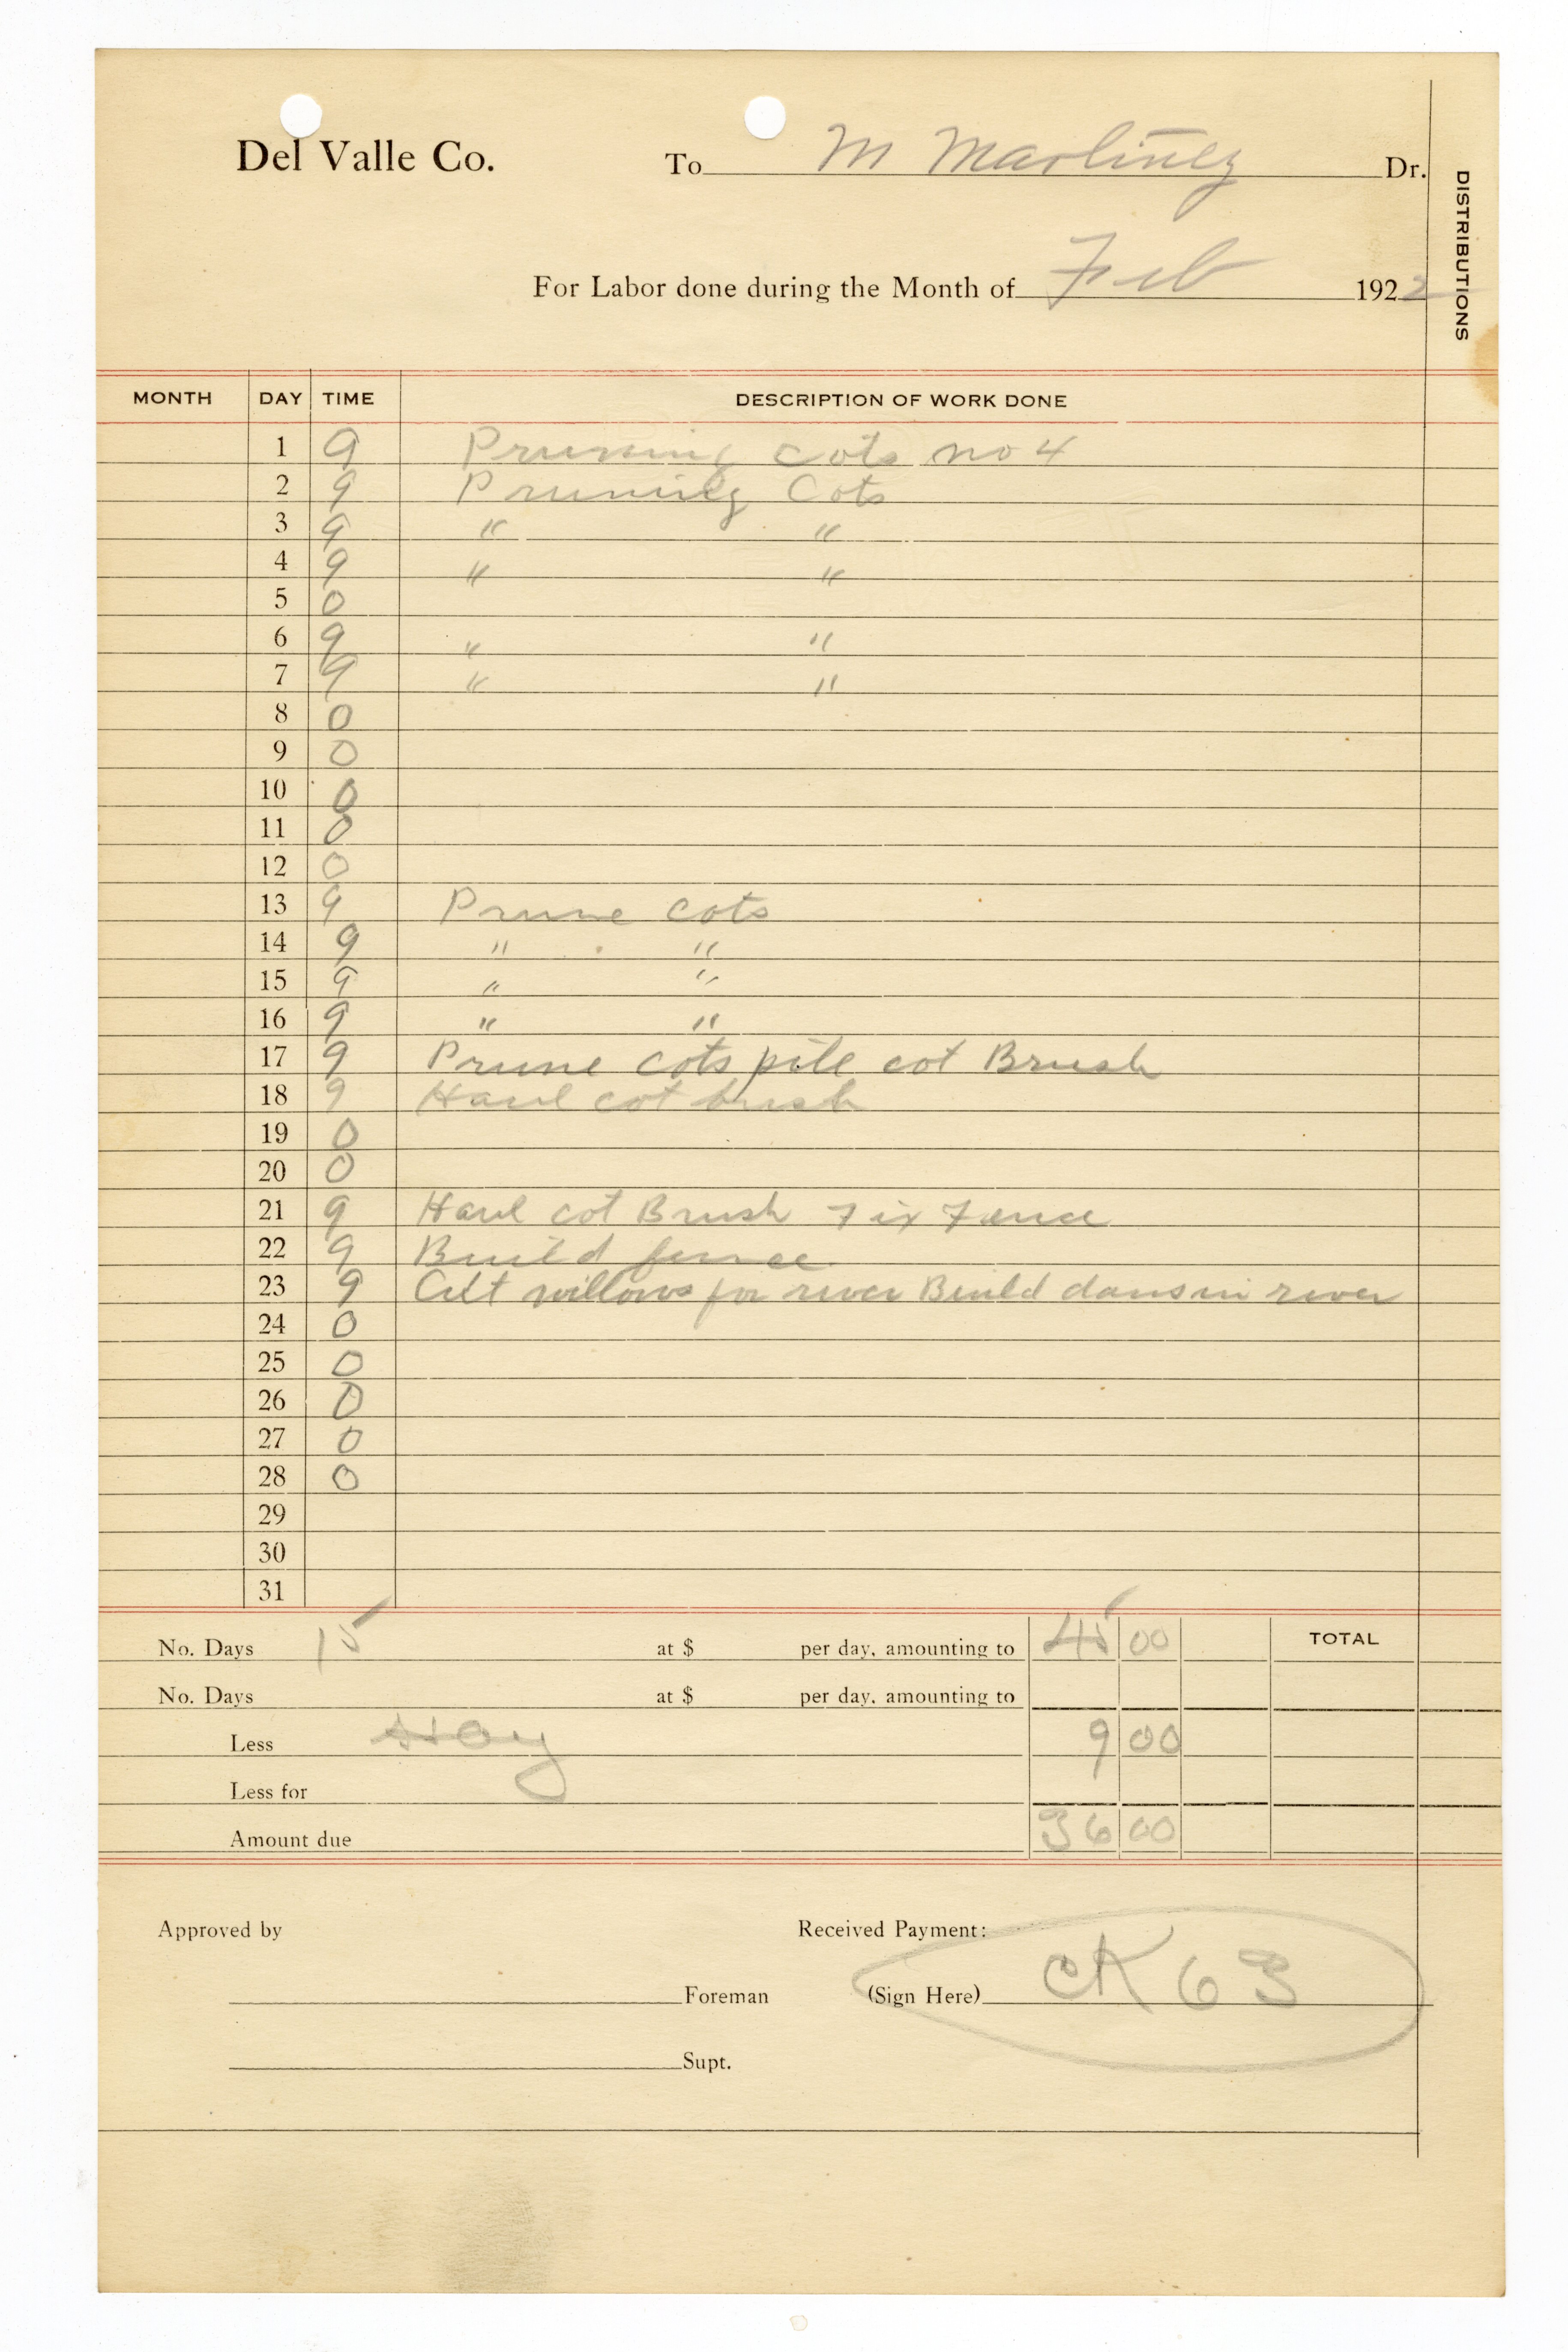 Del Valle Co. To M Martinez Dr.
DISTRIBUTIONS
For Labor done during the Month of Feb 1922
MONTH DAY TIME DESCRIPTION OF WORK DONE
1 9 Pruning cots no 4
2 9 Pruning Cots
3 9 " "
4 9 " "
5 0
6 9 " "
7 9 " "
8 0
9 0
10 0
11 0
12 0
13 9 Prune cots
14 9 " "
15 9 " "
16 9 " "
17 9 Prune cots pile cot Brush
18 9 Haul cot brush
19 0
20 0
21 9 Haul cot Brush Fix Fence
22 9 Build fence
23 9 Cut willows for river Build dams in river
24 0
25 0
26 0
27 0
28 0
29
30
31
No. Days 15 at $ per day, amounting to 45 00 TOTAL
No. Days at $ per day, amounting to
Less Hay 9 00
Less for
Amount due 36 00
Approved by Received Payment:
Foreman (Sign Here) CK 63
Supt.